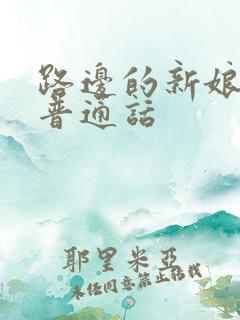 路邊的新娘
普通話
耶里米亞
未任同意禁止転載